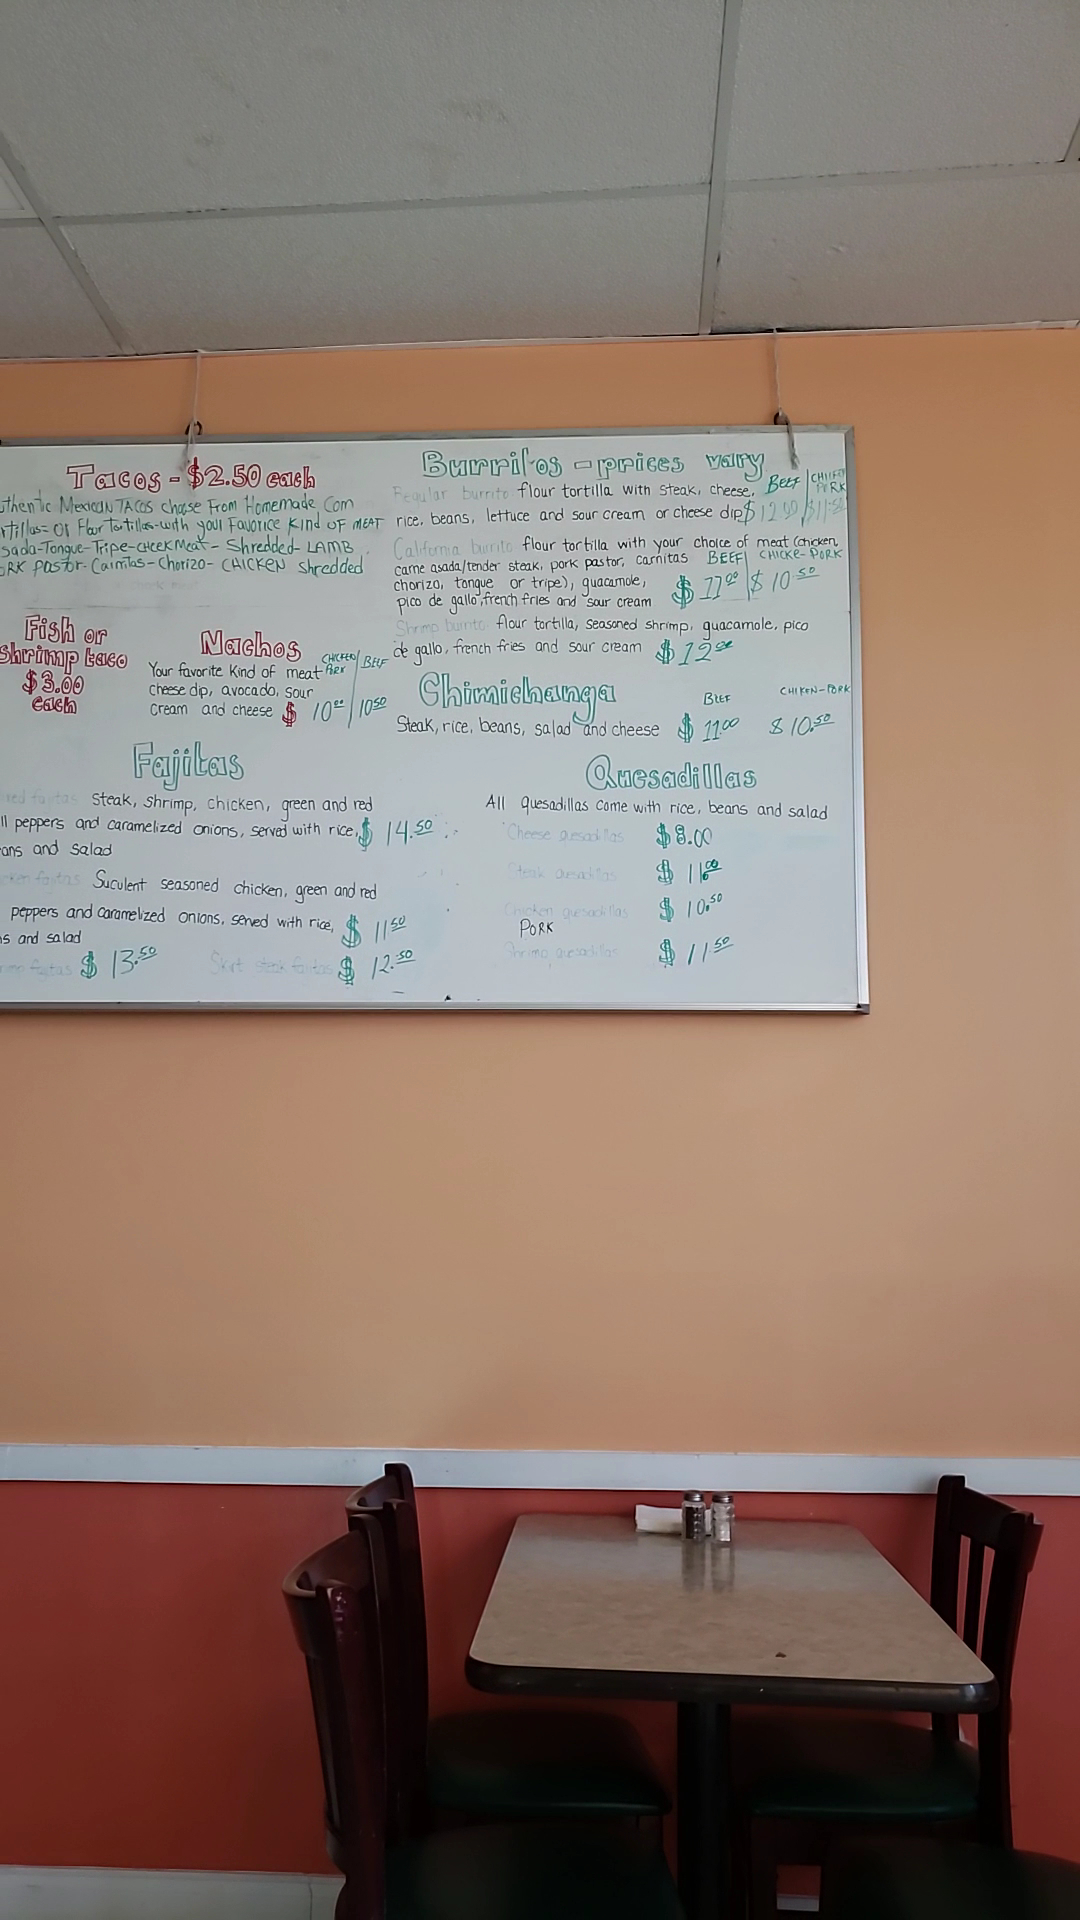 Tacos - $2.50 each
uthentic Mexican TACOS choose From Homemade Corn
rtillas= or Flour tortillas-with your Favorice Kind OF MEAT
sada-Tongue-Tripe-cheek Meat- Shredded- LAMB
ORK pastor-Carnitas-Chorizo- CHICKEN shredded
Fish or
Shrimp taco
$3.00
each
Nachos
Your favorite kind of meat
cheese dip, avocado, sour
cream and cheese
CHICKEN
PORK
BEEF
$ 10.00 / 10.50
Fajitas
xed fajitas steak, shrimp, chicken, green and red
ll peppers and caramelized onions, served with rice, $ 14.50
ans and salad
cken fajitas Suculent seasoned chicken, green and red
peppers and caramelized onions, served with rice, $ 11.50
s and salad
fajitas $ 13.50 Skirt steak fajitas $ 12.50
Burritos - prices vary
Regular burrito flour tortilla with steak, cheese,
rice, beans, lettuce and sour cream or cheese dip
BEEF
CHICKEN
PORK
$12.00 / $11.50
California burrito flour tortilla with your choice of meat (chicken,
carne asada/tender steak, pork pastor, carnitas
chorizo, tongue or tripe), guacamole,
pico de gallo, french fries and sour cream
BEEF CHICKE-PORK
$ 11.00 $ 10.50
Shrimp burrito flour tortilla, seasoned shrimp, guacamole, pico
de gallo, french fries and sour cream $ 12.00
Chimichanga
BEEF CHIKEN-PORK
Steak, rice, beans, salad and cheese $ 11.00 $ 10.50
Quesadillas
All quesadillas come with rice, beans and salad
Cheese quesadillas $ 8.00
Steak quesadillas $ 11.00
Chicken quesadillas $ 10.50
PORK
Shrimp quesadillas $ 11.50